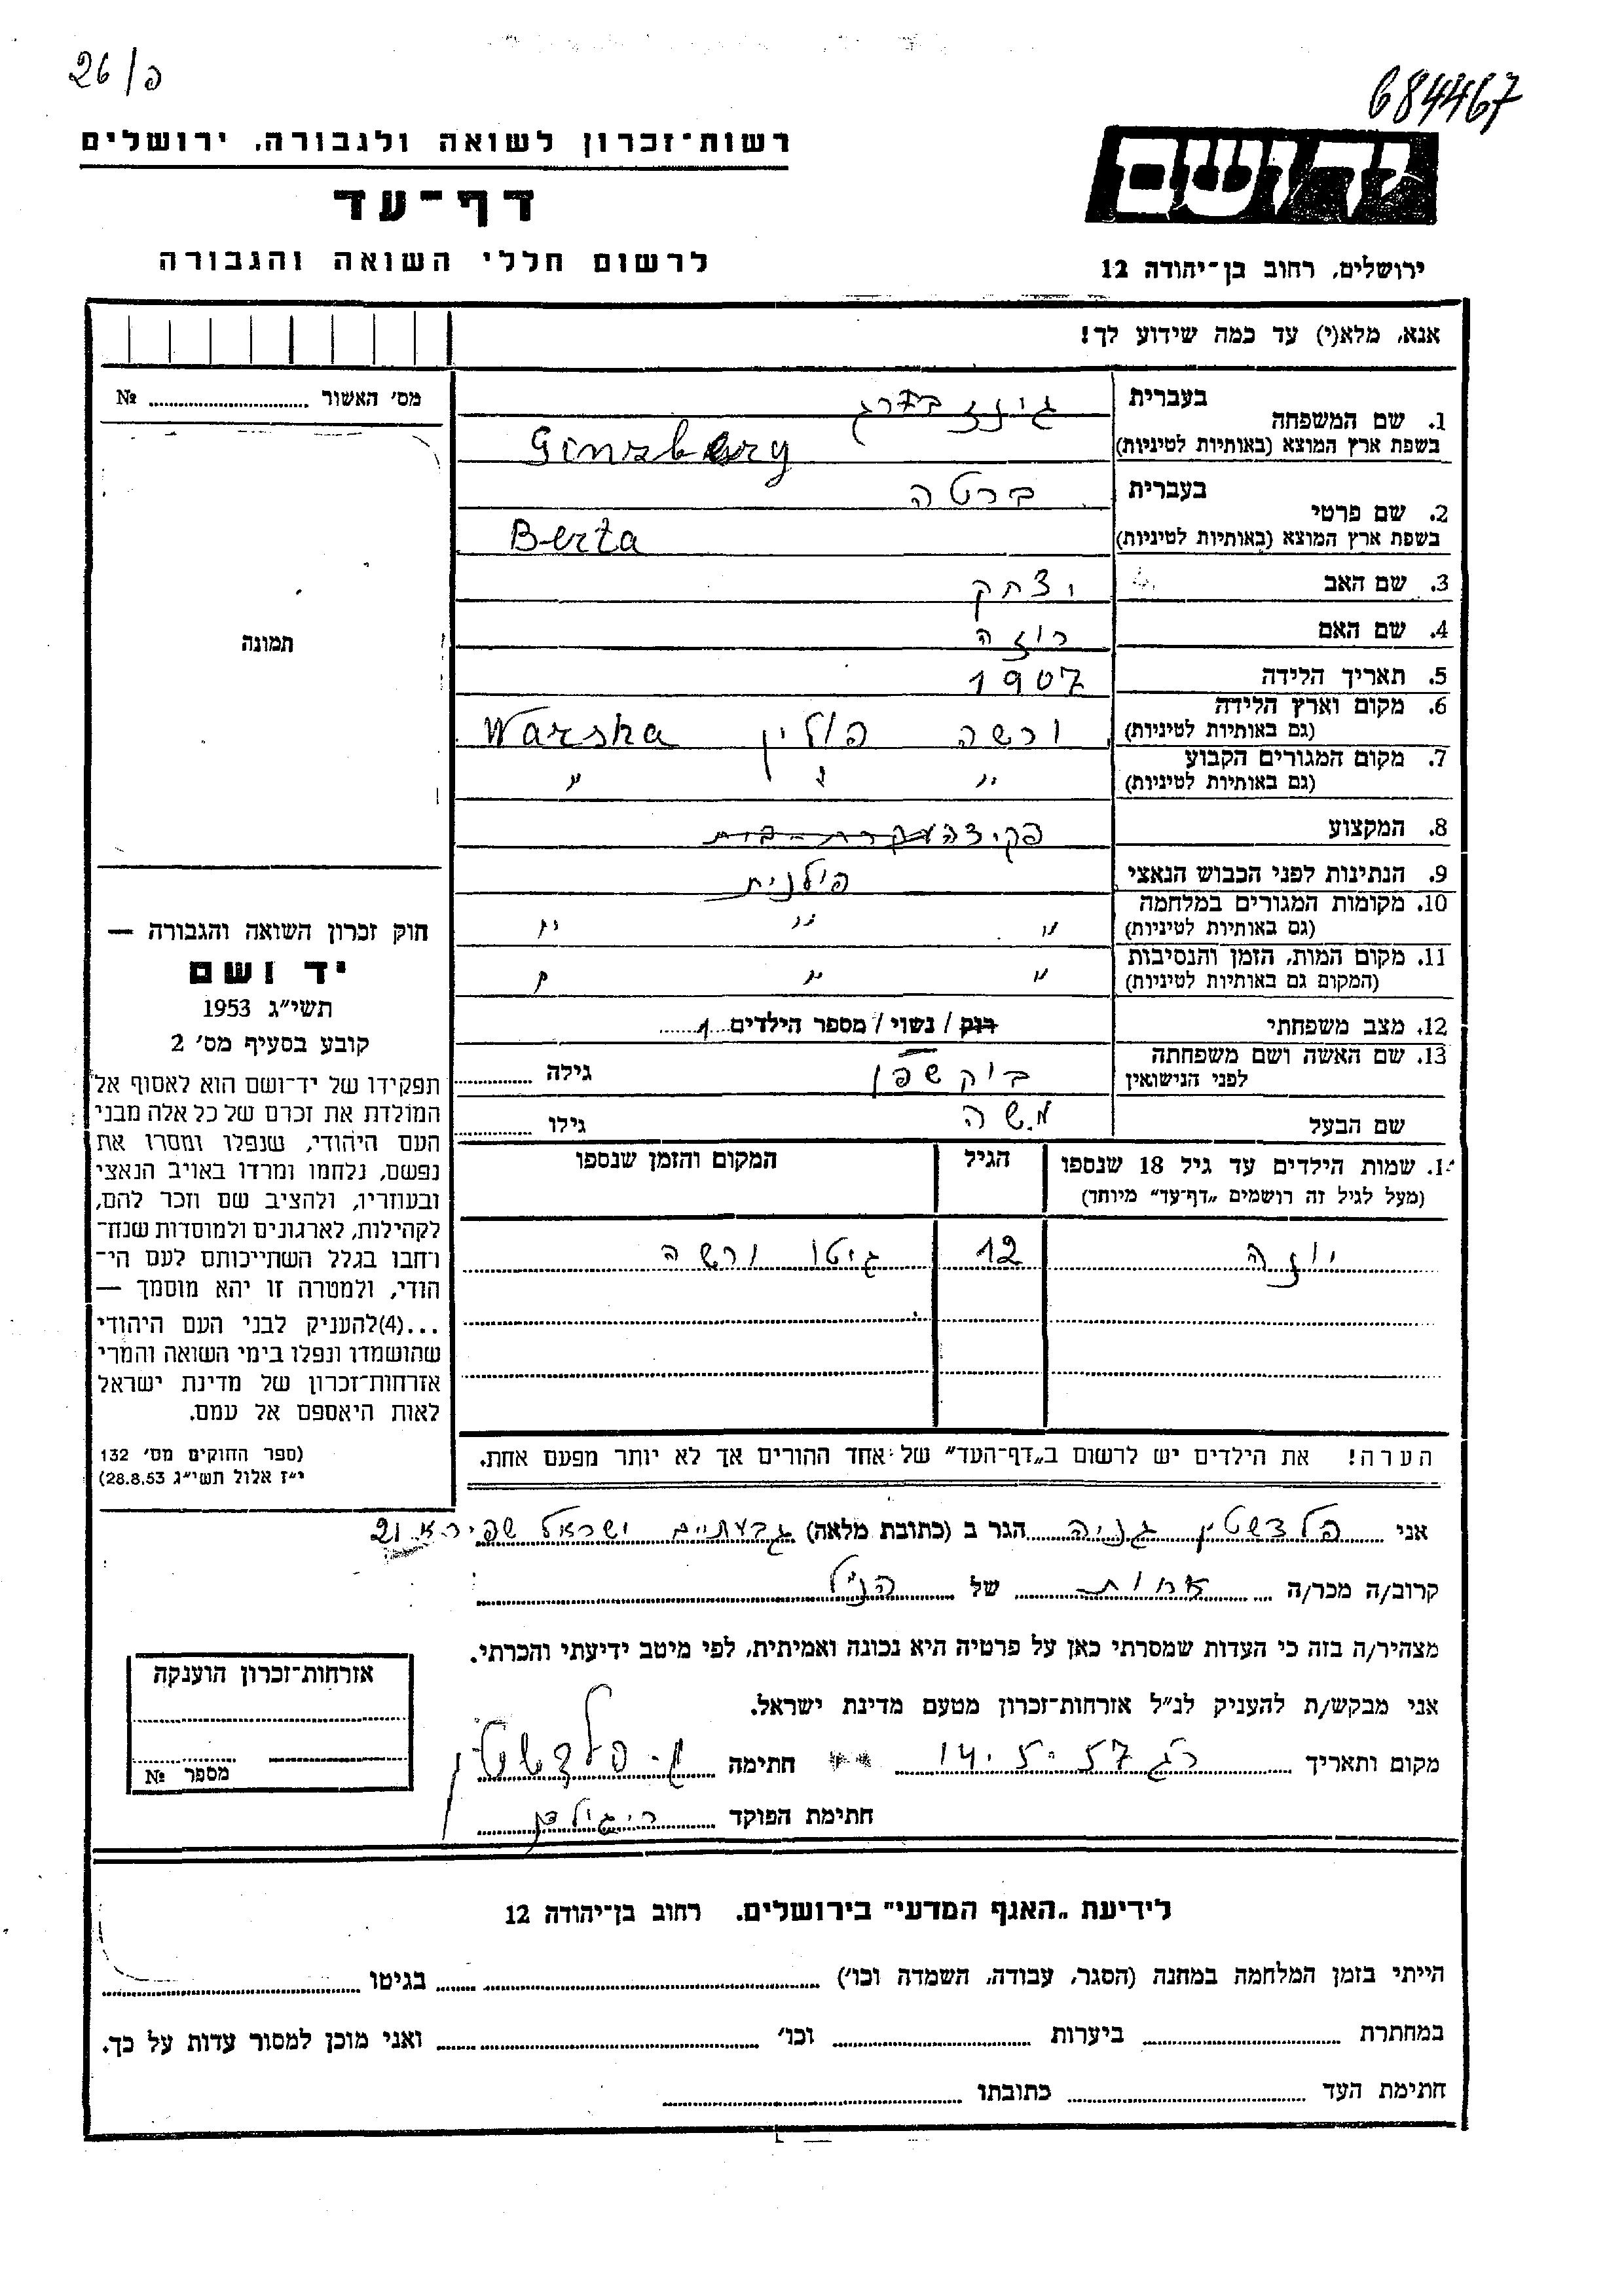 26/פ
684467
רשות־זכרון לשואה ולגבורה, ירושלים
דף־עד
לרשום חללי השואה והגבורה
יד ושם
ירושלים, רחוב בן־יהודה 12
אנא, מלא(י) עד כמה שידוע לך!
מס׳ האשור № 
תמונה
1. שם המשפחה בעברית גינזבערג
בשפת ארץ המוצא (באותיות לטיניות) Ginzberg
2. שם פרטי בעברית ברטה
בשפת ארץ המוצא (באותיות לטיניות) Berta
3. שם האב יצחק
4. שם האם רוזה
5. תאריך הלידה 1907
6. מקום וארץ הלידה (גם באותיות לטיניות) ורשה פולין Warsha
7. מקום המגורים הקבוע (גם באותיות לטיניות) " " "
8. המקצוע פקידה עקרת-בית
9. הנתינות לפני הכבוש הנאצי פולנית
10. מקומות המגורים במלחמה (גם באותיות לטיניות) " " "
11. מקום המות, הזמן והנסיבות (המקום גם באותיות לטיניות) " " "
12. מצב משפחתי רוק / נשוי / מספר הילדים 1
13. שם האשה ושם משפחתה לפני הנישואין גילה
שם הבעל משה גילו
14. שמות הילדים עד גיל 18 שנספו
(מעל לגיל זה רושמים „דף־עד״ מיוחד)
הגיל
המקום והזמן שנספו
יוזה 12 גיטו ורשה
הערה! את הילדים יש לרשום ב„דף־העד״ של אחד ההורים אך לא יותר מפעם אחת.
חוק זכרון השואה והגבורה —
יד ושם
תשי״ג 1953
קובע בסעיף מס׳ 2
תפקידו של יד־ושם הוא לאסוף אל
המולדת את זכרם של כל אלה מבני
העם היהודי, שנפלו ומסרו את
נפשם, נלחמו ומרדו באויב הנאצי
ובעוזריו, ולהציב שם וזכר להם,
לקהילות, לארגונים ולמוסדות שנח־
רחבו בגלל השתייכותם לעם הי־
הודי, ולמטרה זו יהא מוסמך —
...(4)להעניק לבני העם היהודי
שהושמדו ונפלו בימי השואה והמרי
אזרחות־זכרון של מדינת ישראל
לאות היאספם אל עמם.
(ספר החוקים מס׳ 132
י״ז אלול תשי״ג 28.8.53)
אני פלדשטין גניה הגר ב (כתובת מלאה) גבעתיים ישראל שפירא 21
קרוב/ה מכר/ה אחות של הנ״ל
מצהיר/ה בזה כי העדות שמסרתי כאן על פרטיה היא נכונה ואמיתית, לפי מיטב ידיעתי והכרתי.
אני מבקש/ת להעניק לנ״ל אזרחות־זכרון מטעם מדינת ישראל.
מקום ותאריך רג 14.5.57 חתימה ג. פלדשטין
חתימת הפוקד
אזרחות־זכרון הוענקה
מספר №
לידיעת „האגף המדעי״ בירושלים, רחוב בן־יהודה 12
הייתי בזמן המלחמה במחנה (הסגר, עבודה, השמדה וכו׳) בגיטו
במחתרת ביערות וכו׳ ואני מוכן למסור עדות על כך.
חתימת העד כתובתו